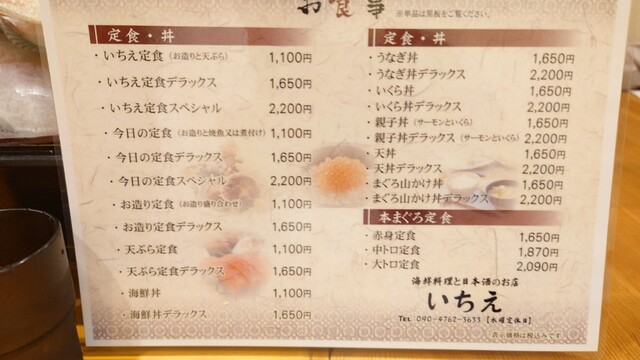 お食事
※単品は黒板をご覧ください。
定食・丼
・いちえ定食(お造りと天ぷら) 1,100円
・いちえ定食デラックス 1,650円
・いちえ定食スペシャル 2,200円
・今日の定食(お造りと焼魚又は煮付け) 1,100円
・今日の定食デラックス 1,650円
・今日の定食スペシャル 2,200円
・お造り定食(お造り盛り合わせ) 1,100円
・お造り定食デラックス 1,650円
・天ぷら定食 1,100円
・天ぷら定食デラックス 1,650円
・海鮮丼 1,100円
・海鮮丼デラックス 1,650円
定食・丼
・うなぎ丼 1,650円
・うなぎ丼デラックス 2,200円
・いくら丼 1,650円
・いくら丼デラックス 2,200円
・親子丼(サーモンといくら) 1,650円
・親子丼デラックス(サーモンといくら) 2,200円
・天丼 1,650円
・天丼デラックス 2,200円
・まぐろ山かけ丼 1,650円
・まぐろ山かけ丼デラックス 2,200円
本まぐろ定食
・赤身定食 1,650円
・中トロ定食 1,870円
・大トロ定食 2,090円
海鮮料理と日本酒のお店
いちえ
TEL 090-4762-3633【水曜定休日】
表示価格は税込みです。